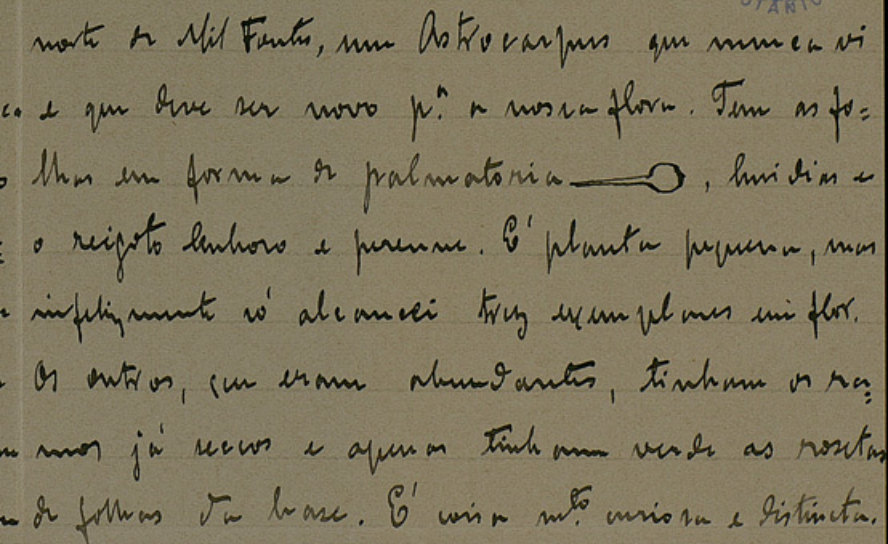 norte de Mil Fontes, um Astrocarpus que nunca vi
e que deve ser novo p.ª a nossa flora. Tem as fo=
lhas em forma de palmatoria , luzidias e
o reigoto lenhoso e perenne. E' planta pequena, mas
infelizmente só alcancei trez exemplares em flor.
Os outros, que eram abundantes, tinham os ra=
mos já seccos e apenas tinham verde as rosetas
de folhas da base. E' coisa mto. curiosa e distincta.